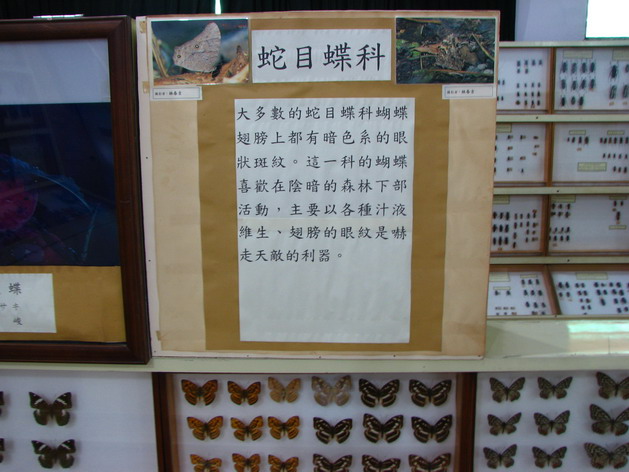 蛇目蝶科
大多數的蛇目蝶科蝴蝶
翅膀上都有暗色系的眼
狀斑紋。這一科的蝴蝶
喜歡在陰暗的森林下部
活動，主要以各種汁液
維生、翅膀的眼紋是嚇
走天敵的利器。
蝶